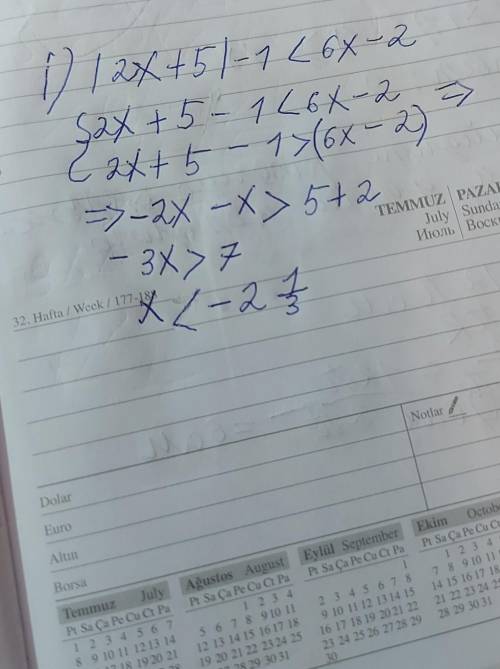 i) |2x+5|-1<6x-2
{2x+5-1<6x-2
{2x+5-1>(6x-2) =>
=>-2x-x>5+2
-3x>7
x<-2 1/3
TEMMUZ PAZAR
July Sunda
Июль Воск
32. Hafta / Week / 177-18
Notlar
Dolar
Euro
Altın
Borsa
Temmuz July
Pt Sa Ça Pe Cu Ct Pa
1 2 3 4 5 6 7
8 9 10 11 12 13 14
17 18 19 20 21
Ağustos August
Pt Sa Ça Pe Cu Ct Pa
1 2 3 4
5 6 7 8 9 10 11
12 13 14 15 16 17 18
19 20 21 22 23 24 25
30 31
Eylül September
Pt Sa Ça Pe Cu Ct Pa
1
2 3 4 5 6 7 8
9 10 11 12 13 14 15
16 17 18 19 20 21 22
23 24 25 26 27 28 29
30
Ekim Octobe
Pt Sa Ça Pe Cu
1 2 3 4
7 8 9 10 11
14 15 16 17 18
21 22 23 24 25
28 29 30 31